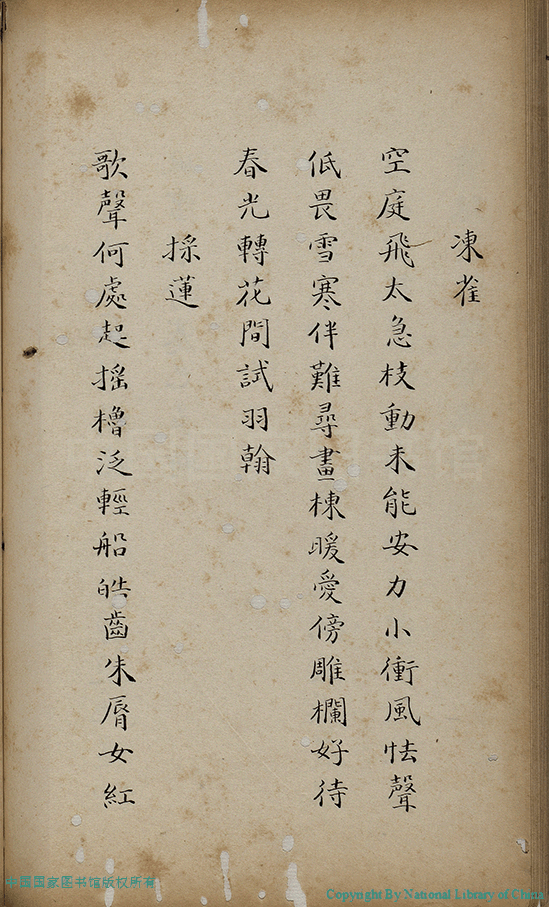 凍雀
空庭飛太急枝動未能安力小衝風怯聲
低畏雪寒伴難尋畫棟暖愛傍雕欄好待
春光轉花間試羽翰
採蓮
歌聲何處起搖櫓泛輕船皓齒朱脣女紅
中国国家图书馆版权所有
Copyright By National Library of China